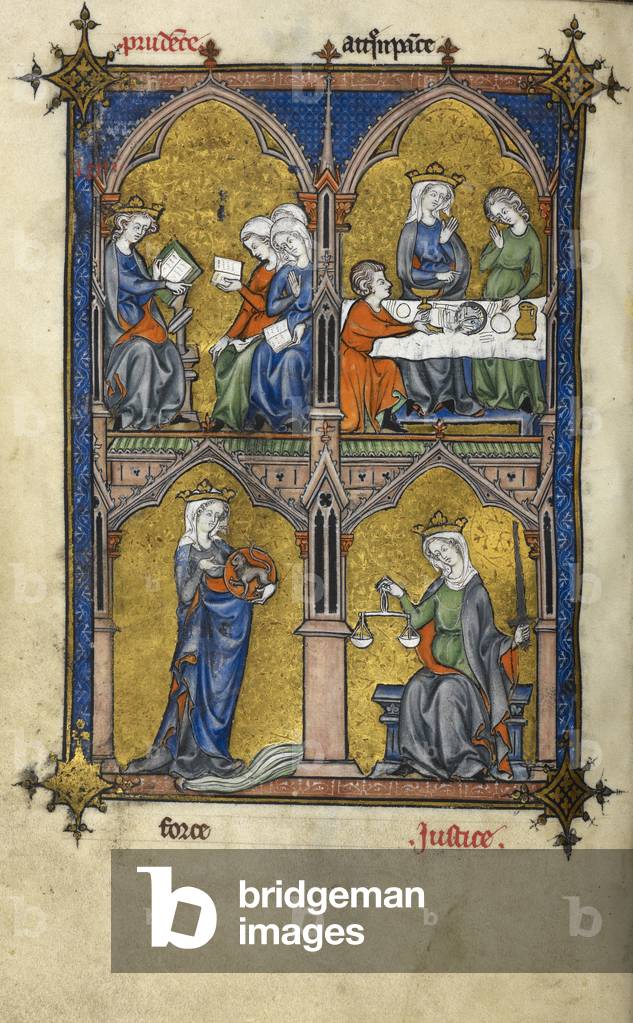 prudence
attempance
force
Justice.
bridgeman
images